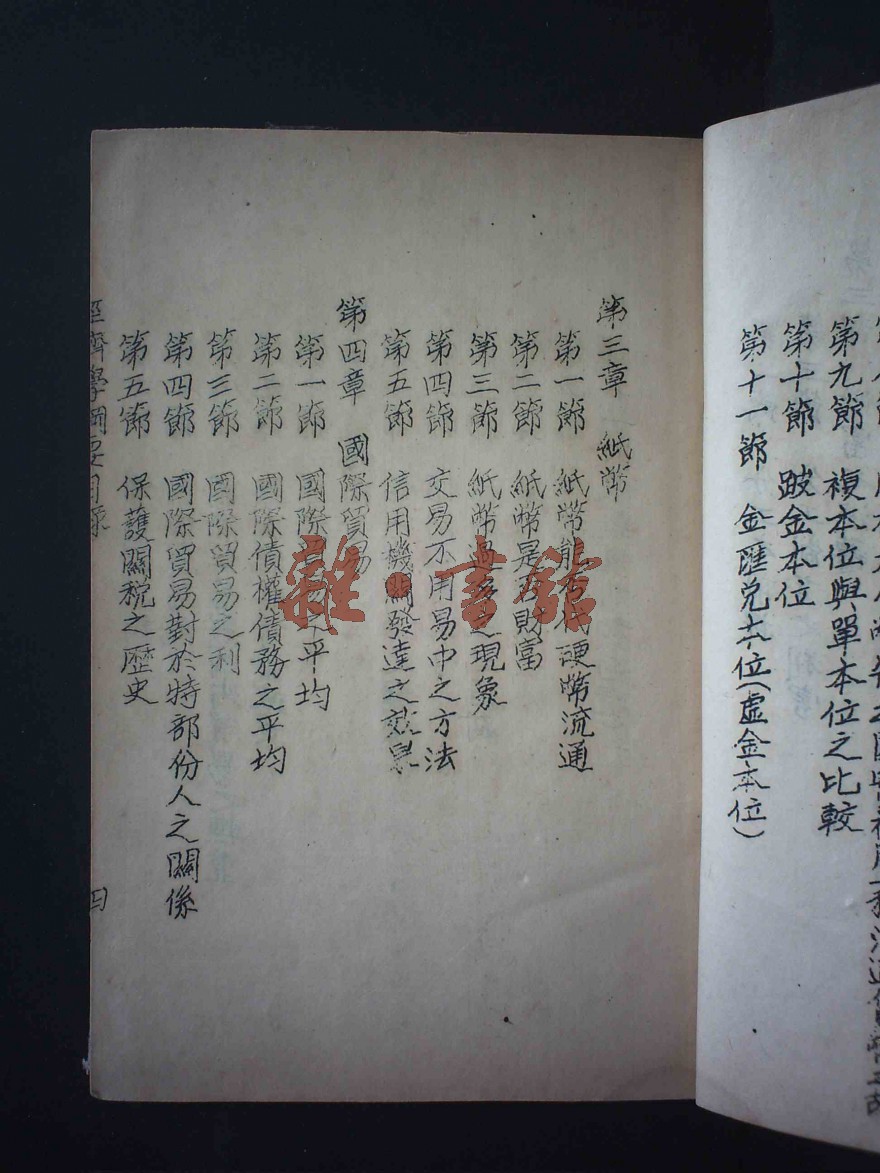 第九節 複本位與單本位之比較
第十節 跛金本位
第十一節 金匯兑本位(虛金本位)
第三章 紙幣
第一節 紙幣能否代硬幣流通
第二節 紙幣是否財富
第三節 紙幣過多之現象
第四節 交易不用易中之方法
第五節 信用機關發達之效果
第四章 國際貿易
第一節 國際貿易之平均
第二節 國際債權債務之平均
第三節 國際貿易之利
第四節 國際貿易對於特部份人之關係
第五節 保護關稅之歷史
經濟學綱要目錄 四
雜·書館